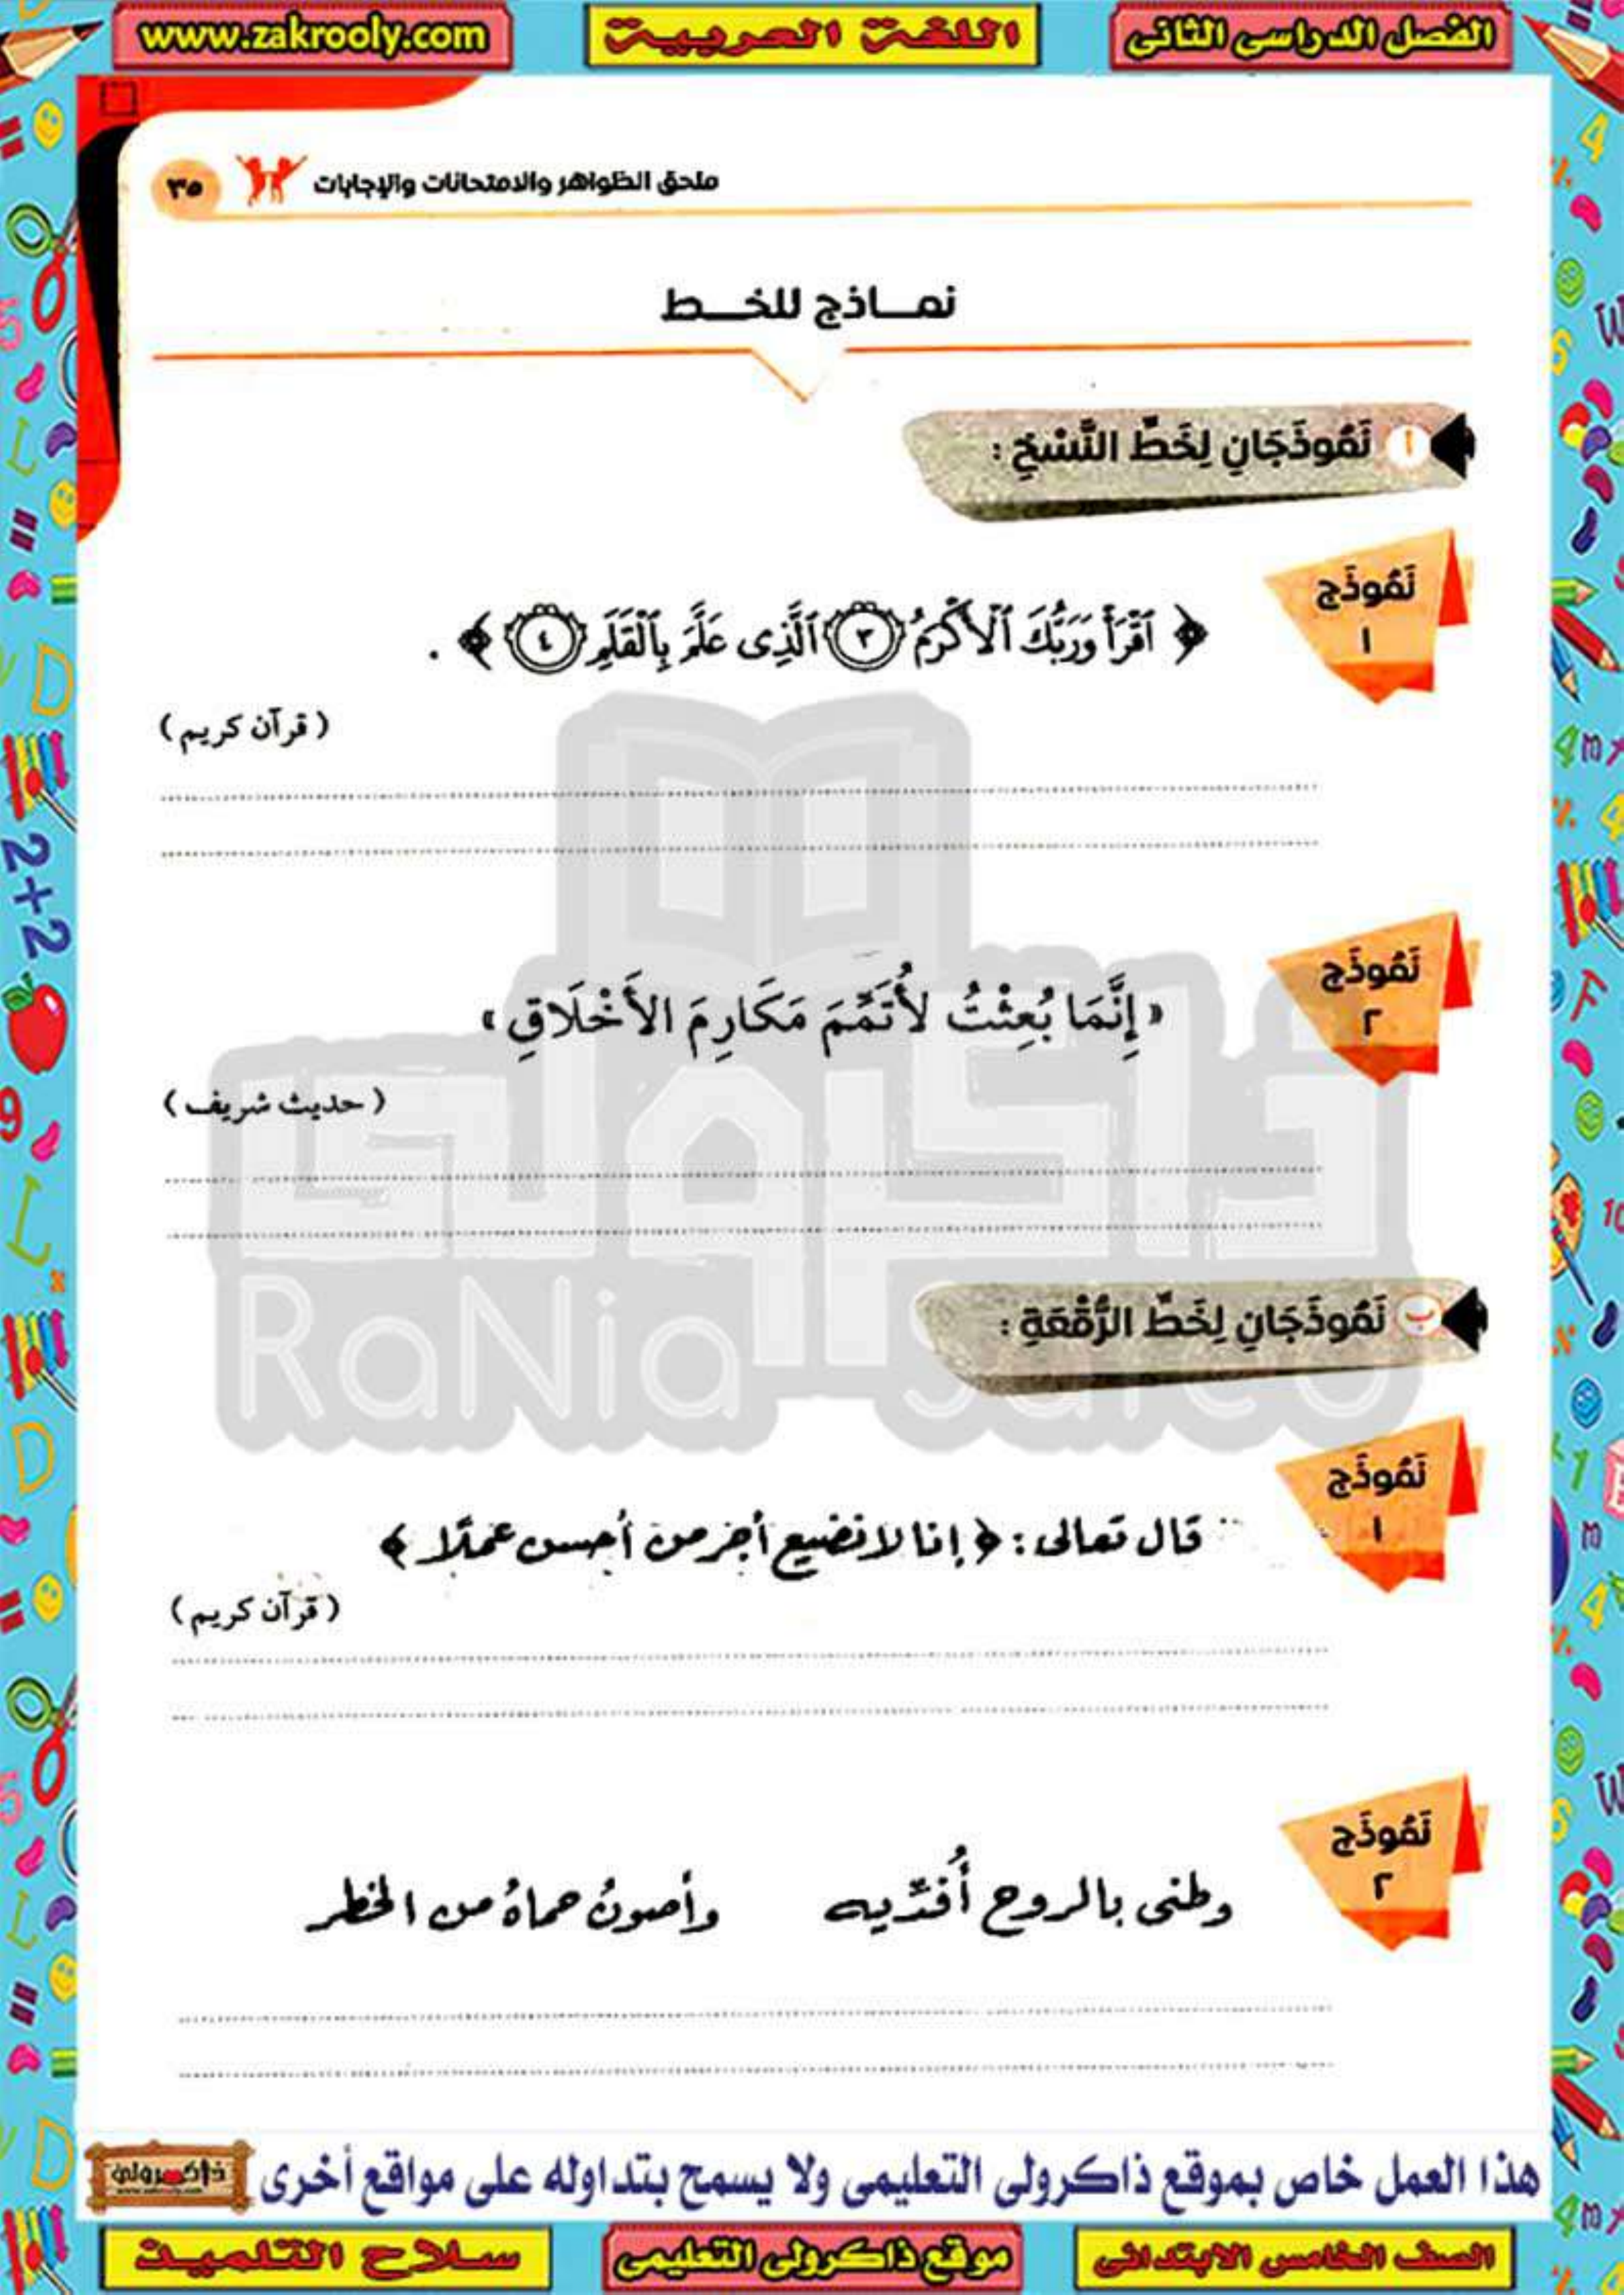 الفصل الدراسى الثانى
اللغة العربية
www.zakrooly.com
ملحق الظواهر والامتحانات والإجابات
٣٥
نمـــاذج للخـــط
أ نَمُوذَجَانِ لِخَطِّ النَّسْخِ :
نَمُوذَج
١
﴿ ٱقْرَأْ وَرَبُّكَ ٱلْأَكْرَمُ ٣ ٱلَّذِى عَلَّمَ بِٱلْقَلَمِ ٤ ﴾ .
( قرآن كريم )
نَمُوذَج
٢
« إِنَّمَا بُعِثْتُ لأُتَمِّمَ مَكَارِمَ الأَخْلَاقِ »
( حديث شريف )
ذاكرولى
RaNia Saieo
ب نَمُوذَجَانِ لِخَطِّ الرُّقْعَةِ :
نَمُوذَج
١
قال تعالى : ﴿ إنا لا نضيع أجر من أحسن عملًا ﴾
( قرآن كريم )
نَمُوذَج
٢
وطنى بالروح أُفدّيه وأصونُ حماهُ من الخطر
هذا العمل خاص بموقع ذاكرولى التعليمى ولا يسمح بتداوله على مواقع أخرى
ذاكرولى
الصف الخامس الابتدائى
موقع ذاكرولى التعليمى
سلاح التلميذ